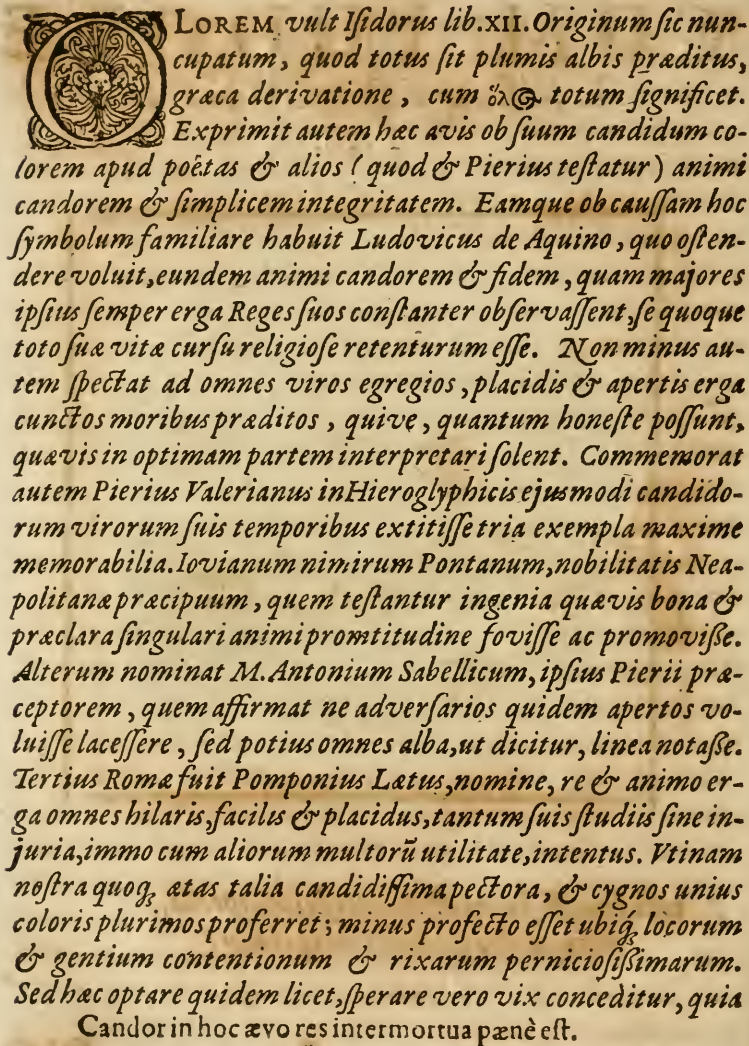 OLOREM vult Iſidorus lib.XII. Originum ſic nun-
cupatum, quod totus ſit plumis albis præditus,
græca derivatione, cum ὅλος totum ſignificet.
Exprimit autem hæc avis ob ſuum candidum co-
lorem apud poëtas & alios (quod & Pierius teſtatur) animi
candorem & ſimplicem integritatem. Eamque ob cauſſam hoc
ſymbolum familiare habuit Ludovicus de Aquino, quo oſten-
dere voluit, eundem animi candorem & fidem, quam majores
ipſius ſemper erga Reges ſuos conſtanter obſervaſſent, ſe quoque
toto ſuæ vitæ curſu religioſe retenturum eſſe. Non minus au-
tem ſpectat ad omnes viros egregios, placidis & apertis erga
cunctos moribus præditos, quive, quantum honeſte poſſunt,
quævis in optimam partem interpretari ſolent. Commemorat
autem Pierius Valerianus in Hieroglyphicis ejusmodi candido-
rum virorum ſuis temporibus extitiſſe tria exempla maxime
memorabilia. Iovianum nimirum Pontanum, nobilitatis Nea-
politanæ præcipuum, quem teſtantur ingenia quævis bona &
præclara ſingulari animi promtitudine foviſſe ac promoviße.
Alterum nominat M. Antonium Sabellicum, ipſius Pierii præ-
ceptorem, quem affirmat ne adverſarios quidem apertos vo-
luiſſe laceſſere, ſed potius omnes alba, ut dicitur, linea notaße.
Tertius Romæ fuit Pomponius Lætus, nomine, re & animo er-
ga omnes hilaris, facilis & placidus, tantum ſuis ſtudiis ſine in-
juria, immo cum aliorum multorũ utilitate, intentus. Vtinam
noſtra quoq; ætas talia candidiſſima pectora, & cygnos unius
coloris plurimos proferret; minus profecto eſſet ubiq; locorum
& gentium contentionum & rixarum pernicioſißimarum.
Sed hæc optare quidem licet, ſperare vero vix conceditur, quia
Candor in hoc ævo res intermortua pænè eſt.